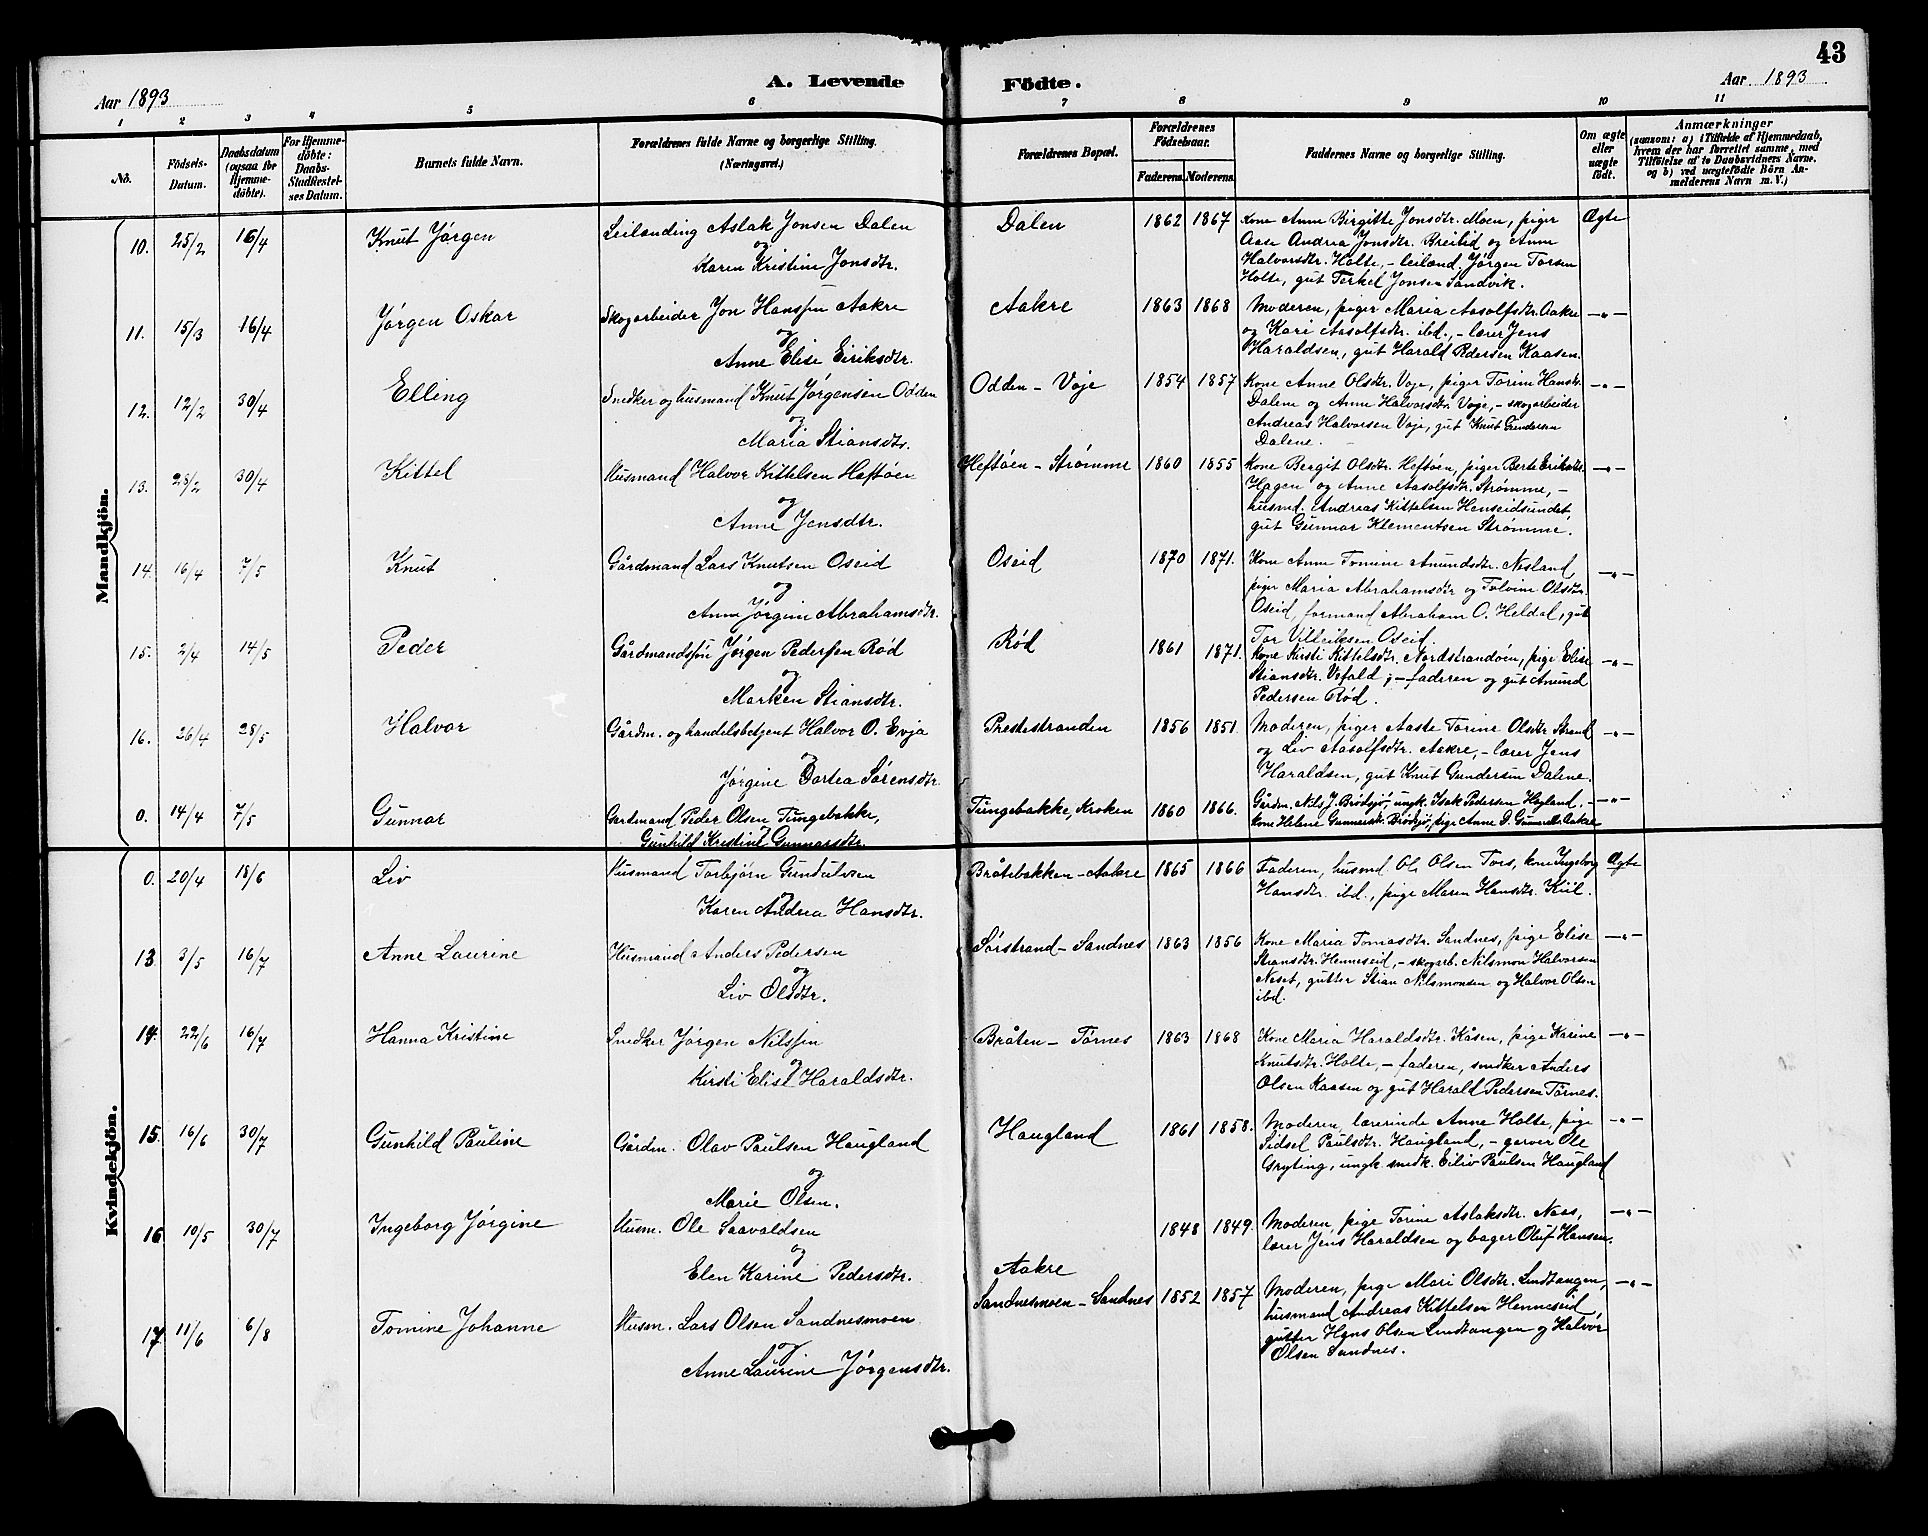 43
A. Levende Födte.
Aar 1893
Aar 1893
1 2 3 4 5 6 7 8 9 10 11
No.
Födsels-Datum.
Daabsdatum (ogsaa for Hjemmedöbte).
For Hjemmedöbte: Daabs-Stadfæstelses Datum.
Barnets fulde Navn.
Forældrenes fulde Navne og borgerlige Stilling. (Næringsvei.)
Forældrenes Bopæl.
Forældrenes Födselsaar.
Faderens. Moderens.
Faddernes Navne og borgerlige Stilling.
Om ægte eller uægte födt.
Anmærkninger
(saasom: a) i Tilfælde af Hjemmedaab, hvem der har forrettet samme, med Tilföielse af to Daabsvidners Navne, og b) ved uægtefödte Börn Anmelderens Navn m. V.)
Mandkjön.
10. 25/2 16/4 Knut Jørgen
Leilænding Aslak Jonsen Dalen
og
Karen Kristine Jonsdtr.
Dalen 1862 1867
Kone Anne Birgitte Jonsdtr. Moen, piger
Aase Andrea Jonsdtr. Breilid og Anne
Halvorsdtr. Holte, - leilænd. Jørgen Torsen
Holte, gut Terkel Jonsen Sandvik.
Ægte
11. 15/3 16/4 Jørgen Oskar
Skogarbeider Jon Hanssen Aakre
og
Anne Elise Eiriksdtr.
Aakre 1863 1868
Moderen, piger Maria Aasolfsdtr. Aakre
og Kari Aasolfsdtr. ibd., - lærer Jens
Haraldsen, gut Harald Pedersen Kaasen.
-"-
12. 12/2 30/4 Elling
Snedker og husmand Knut Jørgensen Odden
og
Maria Stiansdtr.
Odden - Voje 1854 1857
Kone Anne Olsdtr. Voje, piger Torine Hansdtr.
Dalene og Anne Halvorsdtr. Voje, - skogarbeider
Andreas Halvorsen Voje, gut Knut Gundersen
Dalene.
-"-
13. 28/2 30/4 Kittel
Husmand Halvor Kittelsen Heftøen
og
Anne Jensdtr.
Heftøen - Strømme 1860 1855
Kone Bergit Olsdtr. Heftøen, piger Berte Eriksdtr.
Hagen og Anne Aasolfsdtr. Strømme, -
husmd. Andreas Kittelsen Henseidsundet,
gut Gunnar Klementsen Strømme.
-"-
14. 16/4 7/5 Knut
Gårdmand Lars Knutsen Oseid
og
Anne Jørgine Abrahamsdtr.
Oseid 1870 1871.
Kone Anne Tomine Amundsdtr. Nesland,
piger Maria Abrahamsdtr. og Tolvine Olsdtr.
Oseid, formand Abraham O. Heldal, gut
Tor Oseid.
-"-
15. 2/4 14/5 Peder
Gårdmandssøn Jørgen Pedersen Rød
og
Marken Stiansdtr.
Rød 1861 1871.
Kone Kirsti Kittelsdtr. Nordstrandøen, pige Elise
Stiansdtr. Vefald; - faderen og gut Anund
Pedersen Rød.
-"-
16. 26/4 28/5 Halvor
Gårdm. og handelsbetjent Halvor O. Evja
og
Jørgine Dortea Sørensdtr.
Prestestranden 1856 1851.
Moderen, piger Aaste Torine Olsdtr. Strand
og Liv Aasolfsdtr. Aakre, - lærer Jens
Haraldsen, gut Knut Gundersen Dalene.
-"-
0. 14/4 7/5 Gunnar
Gardmand Peder Olsen Tungebakke,
og
Gunhild Kristine Gunnarsdtr.
Tungebakke, Kroken 1860 1866.
Gårdm. Nils J. Brødsjø, ungk. Isak Pedersen Høgland, -
kone Helene Gunnersdtr. Brødsjø, pige Anne D. Aakre
-"-
Kvindekjön.
0. 20/4 18/6 Liv
Husmand Torbjørn Gundulvsen
og
Karen Andrea Hansdtr.
Bråtebakken - Aakre 1865 1866
Faderen, husmd. Ole Olsen Tors, kone Ingeborg
Hansdtr. ibd., pige Maren Hansdtr. Kiil.
Ægte
13 3/5 16/7 Anne Laurine
Husmand Anders Pedersen
og
Liv Olsdtr.
Sørstrand - Sandnes 1863 1856
Kone Maria Tomasdtr. Sandnes, pige Elise
Stiansdtr. Henneseid, - skogarb. Nilsmon Halvorsen
Neset, gutter Stian Nilsmonsen og Halvor Olsen
ibd.
-"-
14. 22/6 16/7 Hanna Kristine
Snedker Jørgen Nilssen
og
Kirsti Elise Haraldsdtr.
Bråten - Tørnes 1863 1868
Kone Maria Haraldsdtr. Kåsen, pige Karine
Knutsdtr. Holte, - faderen, snedker Anders
Olsen Kaasen og gut Harald Pedersen Tørnes.
-"-
15. 16/6 30/7 Gunhild Pauline
Gårdm. Olav Paulsen Haugland
og
Marie Olsen.
Haugland 1861 1858.
Moderen, lærerinde Anne Holte, pige
Sidsel Paulsdtr. Haugland, - garver Ole
Gryting, ungk. snedk. Eiliv Paulsen Haugland
-"-
16 10/5 30/7 Ingeborg Jørgine
Husm. Ole Saavaldsen
og
Elen Karine Pedersdtr.
Aakre 1848 1849.
Moderen, pige Torine Aslaksdtr. Naas,
lærer Jens Haraldsen og bager Oluf Hansen.
-"-
17. 11/6 6/8 Tomine Johanne
Husm. Lars Olsen Sandnesmoen
og
Anne Laurine Jørgensdtr.
Sandnesmoen - Sandnes 1852 1857
Moderen, pige Mari Olsdtr. Lindtangen,
husmand Andreas Kittelsen Henneseid,
gutter Hans Olsen Lindtangen og Halvor
Olsen Sandnes.
-"-